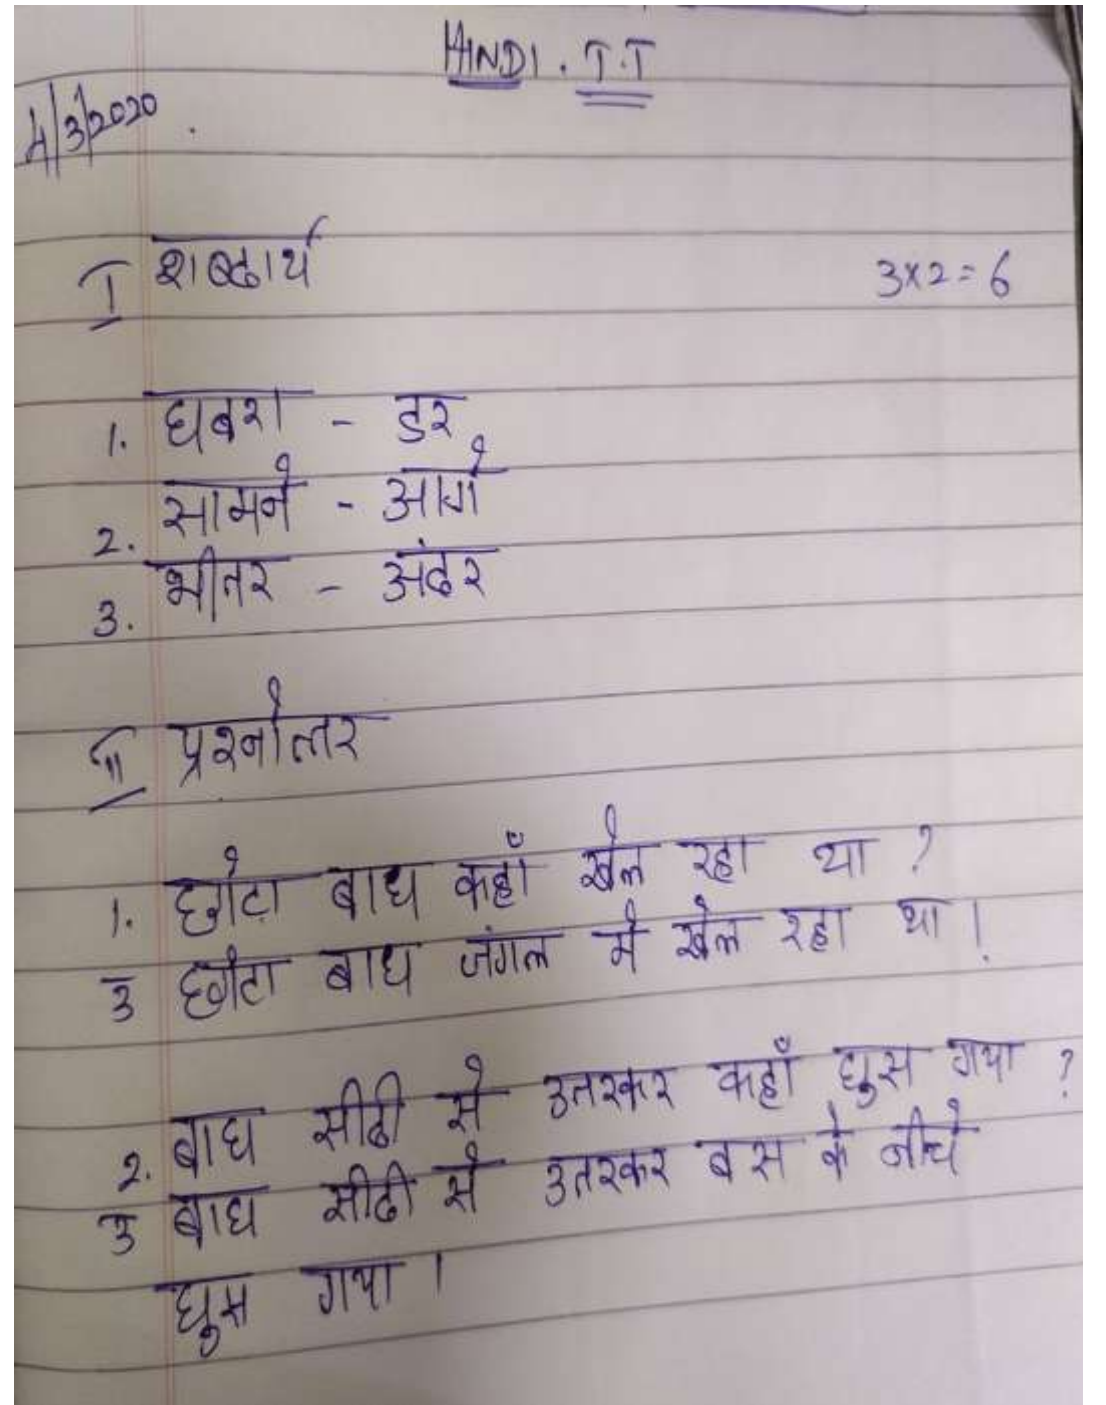 HINDI. T.T
4/3/2020
I शब्दार्थ 3x2=6
1. घबरा - डर
2. सामने - आगे
3. भीतर - अंदर
II प्रश्नोत्तर
1. छोटा बाघ कहाँ खेल रहा था ?
उ छोटा बाघ जंगल में खेल रहा था ।
2. बाघ सीढी से उतरकर कहाँ घुस गया ?
उ बाघ सीढी से उतरकर बस के नीचे
घुस गया ।